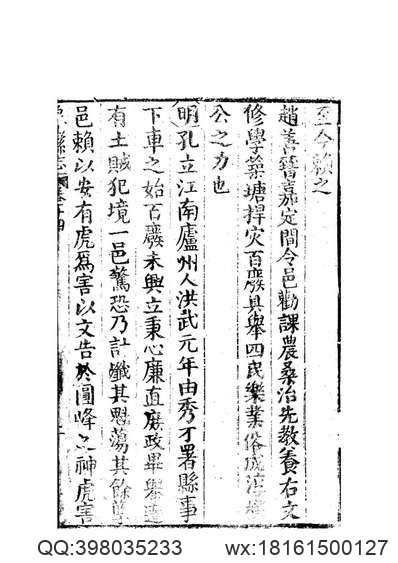 至今賴之
趙善晉嘉定間令邑勸課農桑治先教養右文
修學築塘捍灾百廢具舉四民樂業俗成淳
公之力也
明孔立江南廬州人洪武元年由秀才署縣事
下車之始百廢未興立秉心廉直庶政畢舉
有土賊犯境一邑驚恐乃計殲其魁蕩其餘
邑賴以安有虎爲害以文告於圓峰之神虎害
縣志
QQ:398035233 wx:18161500127